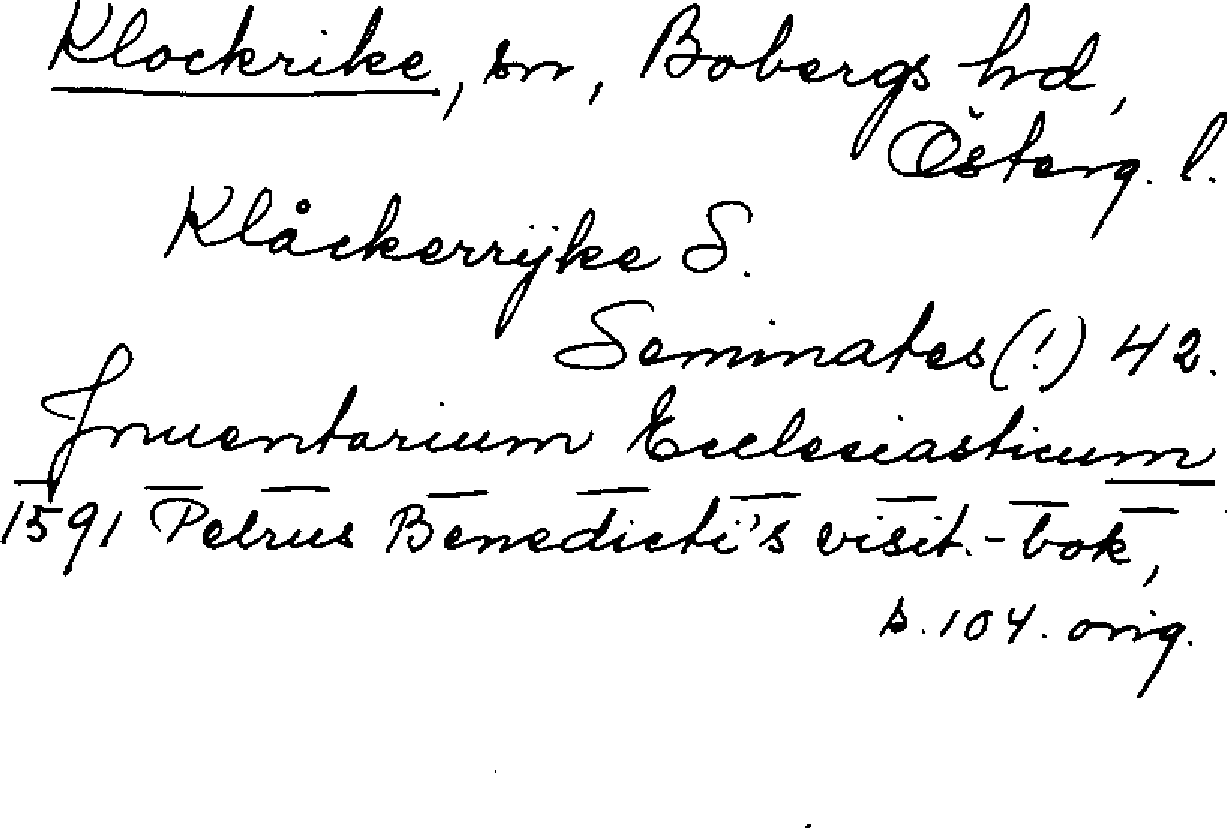 Klockrike, sn, Bobergs hd,
Österg. l.
Klåckerrÿke S.
Seminates (!) 42.
Inuentarium Ecclesiasticum
1591 Petrus Benedicti's visit.-bok,
s. 104. orig.